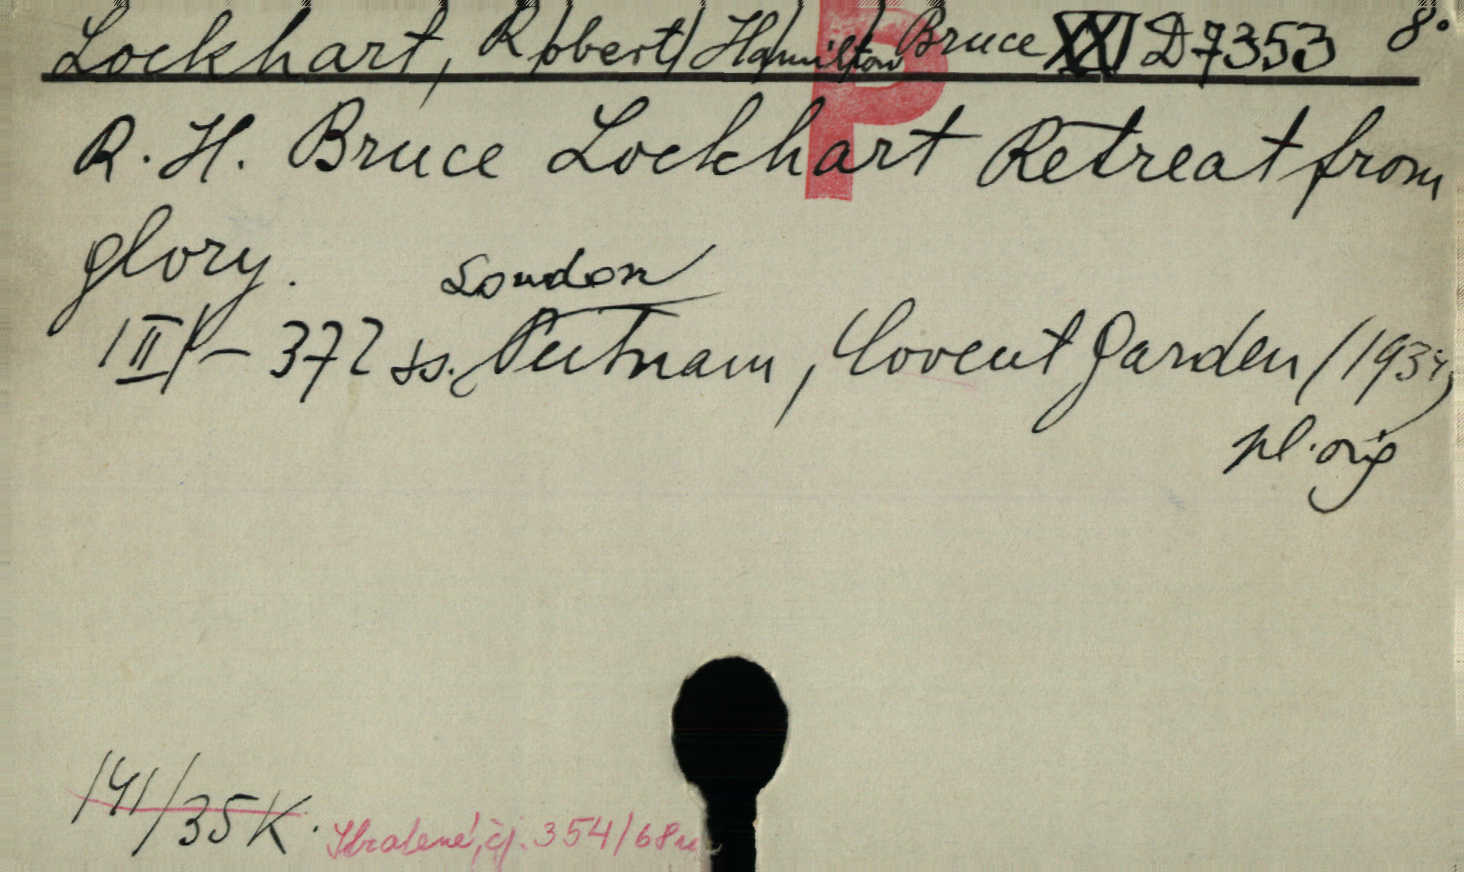 Lockhart, R/obert/ H/amilton/ Bruce XXI D 7353 8°
P
R. H. Bruce Lockhart Retreat from
glory.
London
/III/ - 372 ss., Putnam, Covent Garden /1934,
pl. orig
141/35 K. Ztracené, čj. 354/68